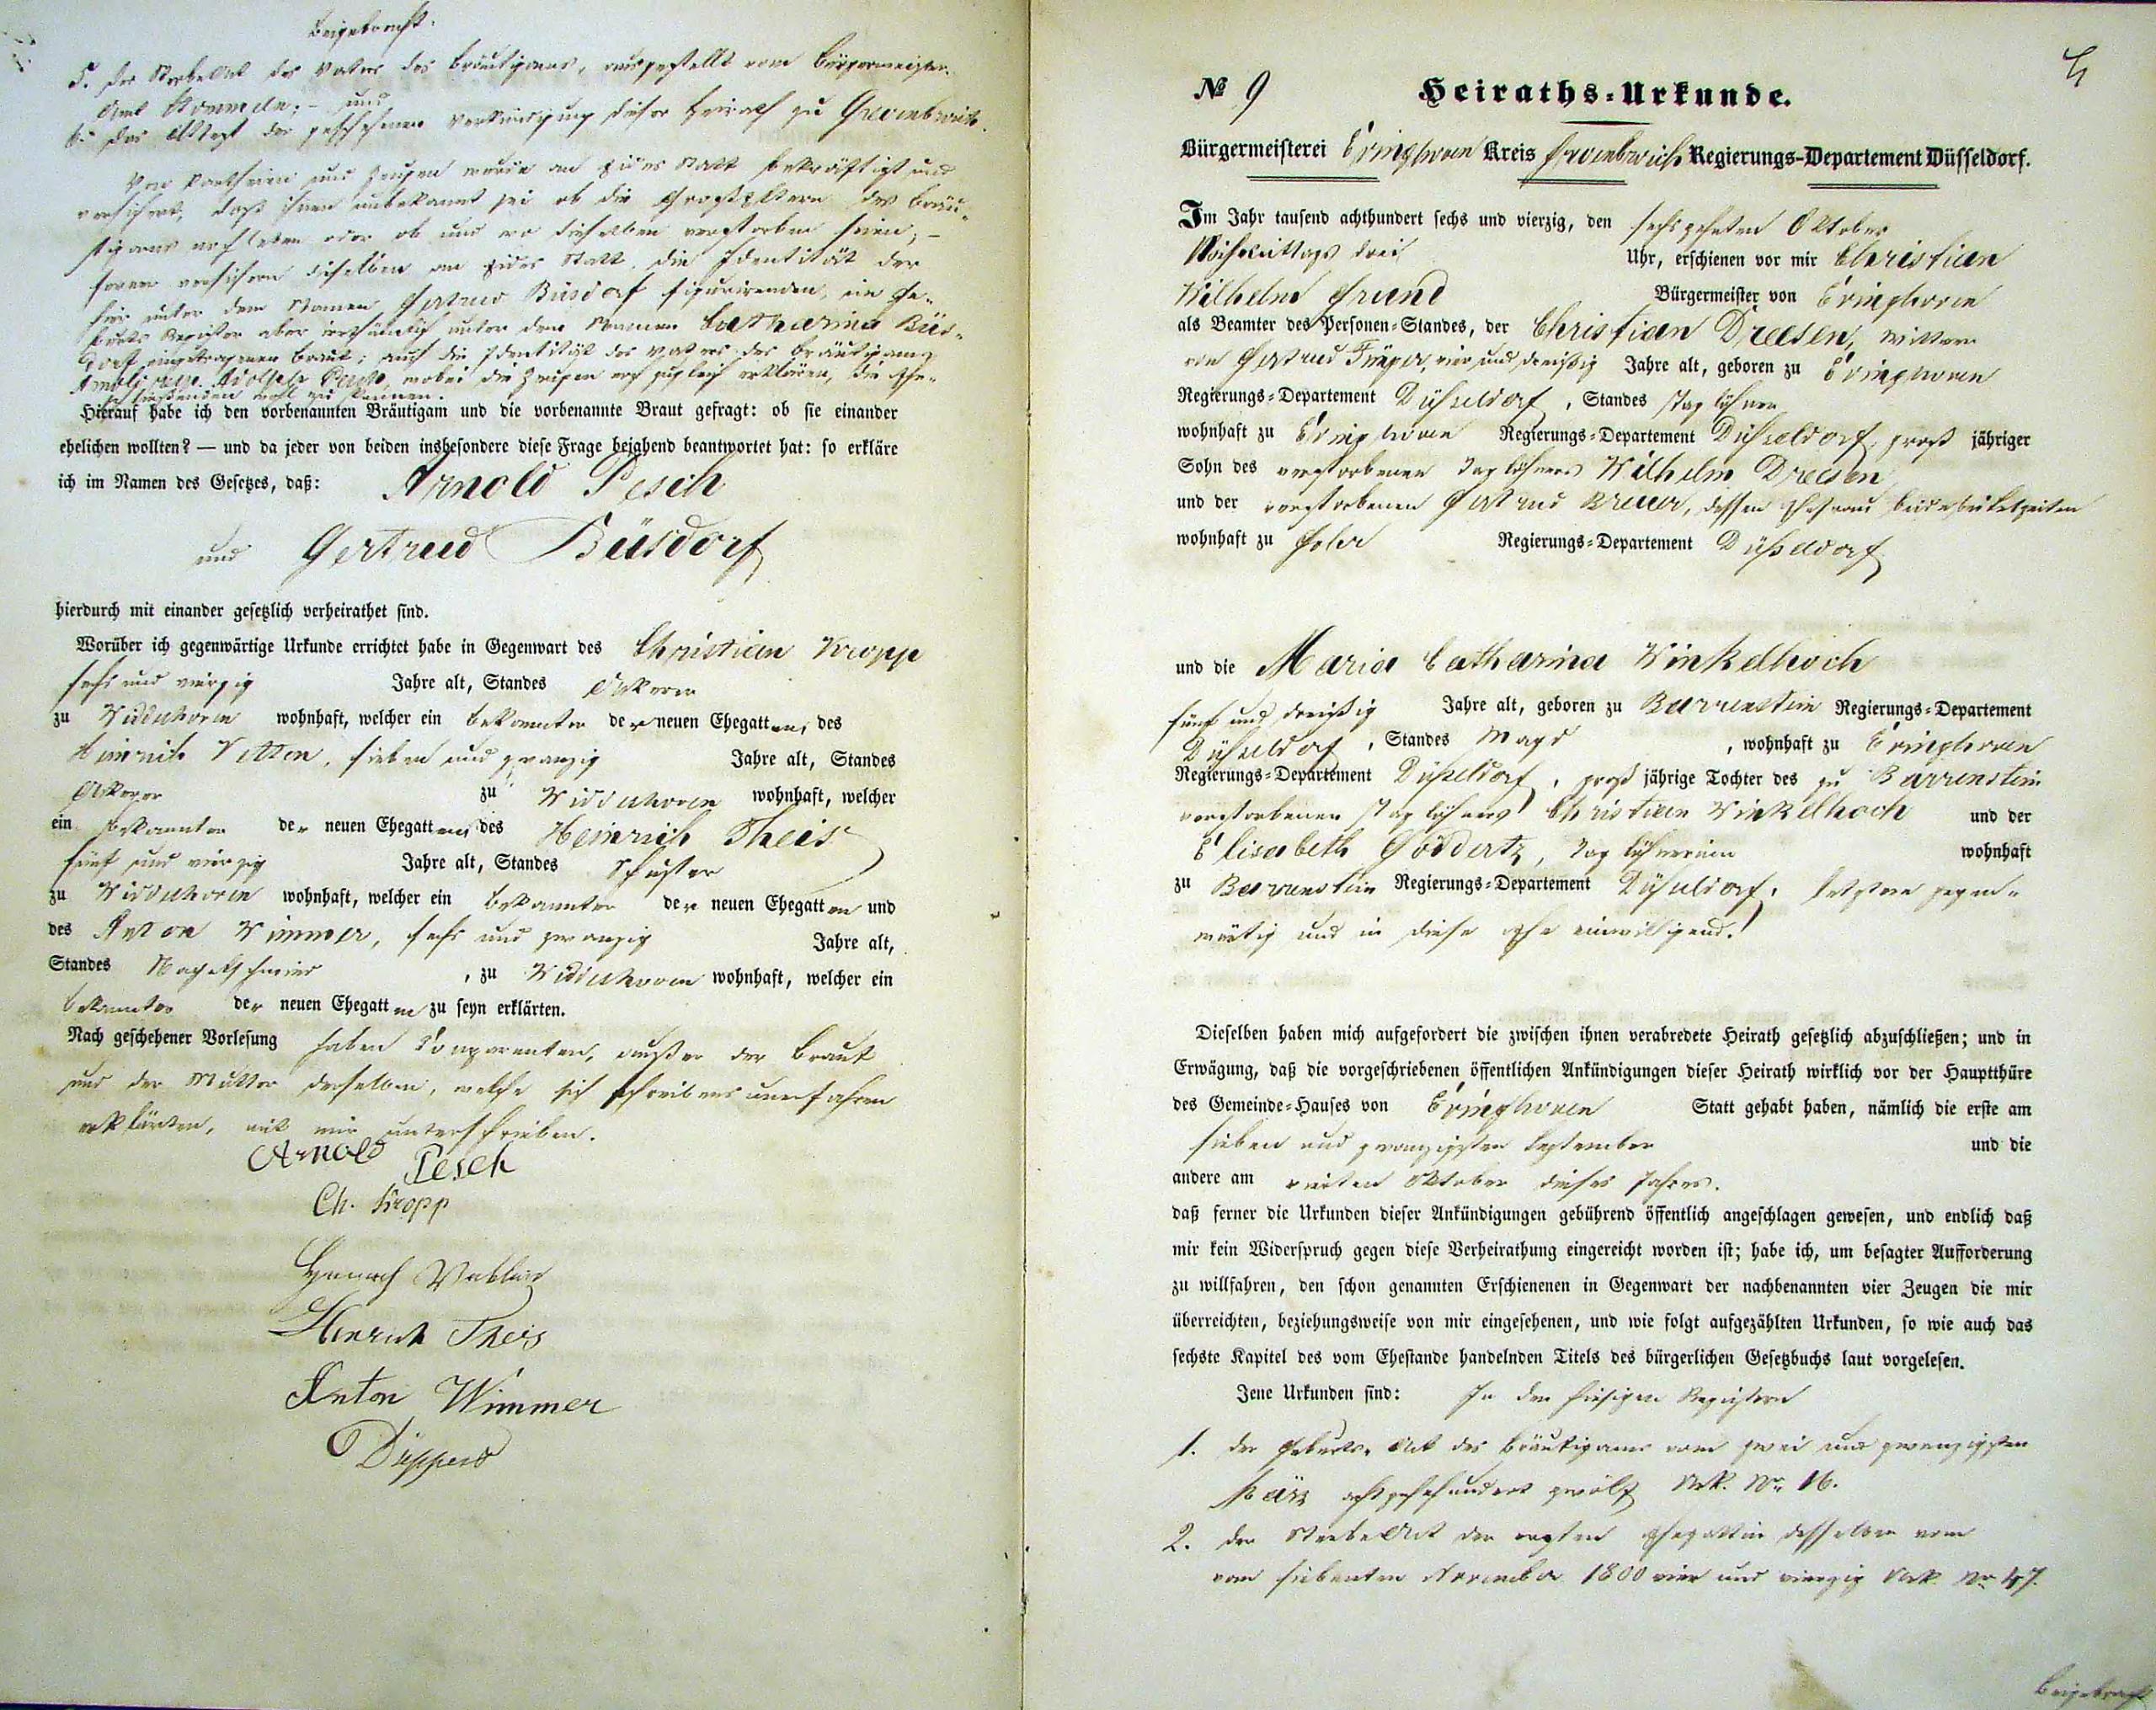 Beigebracht.
5. der Sterbeakt des Vaters des Bräutigams, ausgestellt vom Bürgermeister-
Amt Nommeln; - und
6. das Attest der geschehenen Verkündigung dieser Heirath zu Grevenbroich.
Von Partheien und Zeugen wurde an Eides Statt bekräftigt und
versichert, daß ihnen unbekannt sei ob die Großeltern des Bräu-
tigams noch leben oder ob und wo dieselben verstorben seien; -
ferner versichern dieselben an Eides Statt die Identität der
hier unter dem Namen Gertrud Büsdorf figurirenden, im Ge-
burts Register aber irrthümlich unter dem Namen Catharina Büs-
dorf eingetragenen Braut; auch die Identität des Vaters des Bräutigams
Arnold resp. Adolph Pesch, wobei die Zeugen noch zugleich erklären, die Ehe-
schließenden wohl zu kennen.
Hierauf habe ich den vorbenannten Bräutigam und die vorbenannte Braut gefragt: ob sie einander
ehelichen wollten? — und da jeder von beiden insbesondere diese Frage bejahend beantwortet hat: so erkläre
ich im Namen des Gesetzes, daß: Arnold Pesch
und Gertrud Büsdorf
hierdurch mit einander gesetzlich verheirathet sind.
Worüber ich gegenwärtige Urkunde errichtet habe in Gegenwart des Christian Kropp
sechs und vierzig Jahre alt, Standes Ackerer
zu Widdeshoven wohnhaft, welcher ein bekannter der neuen Ehegatten, des
Heinrich Vetten, sieben und zwanzig Jahre alt, Standes
Ackerer zu Widdeshoven wohnhaft, welcher
ein bekannter der neuen Ehegatten, des Heinrich Theis
fünf und vierzig Jahre alt, Standes Schuster
zu Widdeshoven wohnhaft, welcher ein bekannter der neuen Ehegatten und
des Anton Wimmer, sechs und zwanzig Jahre alt,
Standes Nagelschmied, zu Widdeshoven wohnhaft, welcher ein
bekannter der neuen Ehegatten zu seyn erklärten.
Nach geschehener Vorlesung haben Comparenten, außer der Braut
und der Mutter derselben, welche sich schreibensunerfahren
erklärten, mit mir unterschrieben.
Arnold Pesch
Ch. Kropp
Heinrich
Heinrich Theis
Anton Wimmer
Düppers
№ 9 Heiraths-Urkunde.
Bürgermeisterei Evinghoven Kreis Grevenbroich Regierungs-Departement Düsseldorf.
Im Jahr tausend achthundert sechs und vierzig, den sechszehnten Oktober
Nachmittags drei Uhr, erschienen vor mir Christian
Wilhelm Grund Bürgermeister von Evinghoven
als Beamter des Personen-Standes, der Christian Dreesen, Wittwer
von Gertrud, vier und dreißig Jahre alt, geboren zu Evinghoven
Regierungs-Departement Düsseldorf, Standes Taglöhner
wohnhaft zu Evinghoven Regierungs-Departement Düsseldorf, groß jähriger
Sohn des verstorbenen Taglöhners Wilhelm Dreesen
und der verstorbenen Gertrud Breuer, dessen Ehefrau beide bei Lebzeiten
wohnhaft zu Regierungs-Departement Düsseldorf
und die Maria Catharina Winkelhoch
fünf und dreißig Jahre alt, geboren zu Barrenstein Regierungs-Departement
Düsseldorf, Standes Magd, wohnhaft zu Evinghoven
Regierungs-Departement Düsseldorf, groß jährige Tochter des zu Barrenstein
verstorbenen Taglöhners Christian Winkelhoch und der
Elisabeth Göddertz, Taglöhnerinn wohnhaft
zu Barrenstein Regierungs-Departement Düsseldorf, letztere gegen-
wärtig und in diese Ehe einwilligend.
Dieselben haben mich aufgefordert die zwischen ihnen verabredete Heirath gesetzlich abzuschließen; und in
Erwägung, daß die vorgeschriebenen öffentlichen Ankündigungen dieser Heirath wirklich vor der Hauptthüre
des Gemeinde-Hauses von Evinghoven Statt gehabt haben, nämlich die erste am
sieben und zwanzigsten September und die
andere am vierten Oktober dieses Jahres.
daß ferner die Urkunden dieser Ankündigungen gebührend öffentlich angeschlagen gewesen, und endlich daß
mir kein Widerspruch gegen diese Verheirathung eingereicht worden ist; habe ich, um besagter Aufforderung
zu willfahren, den schon genannten Erschienenen in Gegenwart der nachbenannten vier Zeugen die mir
überreichten, beziehungsweise von mir eingesehenen, und wie folgt aufgezählten Urkunden, so wie auch das
sechste Kapitel des vom Ehestande handelnden Titels des bürgerlichen Gesetzbuchs laut vorgelesen.
Jene Urkunden sind: In den hiesigen Registern
1. der Geburts-Akt des Bräutigams vom zwei und zwanzigsten
März achtzehnhundert zwölf Urk. No. 16.
2. der Sterbe Akt der ersten Ehegattin desselben vom
vom siebenten November 1800 vier und vierzig Urk. No 47.
Beigebracht